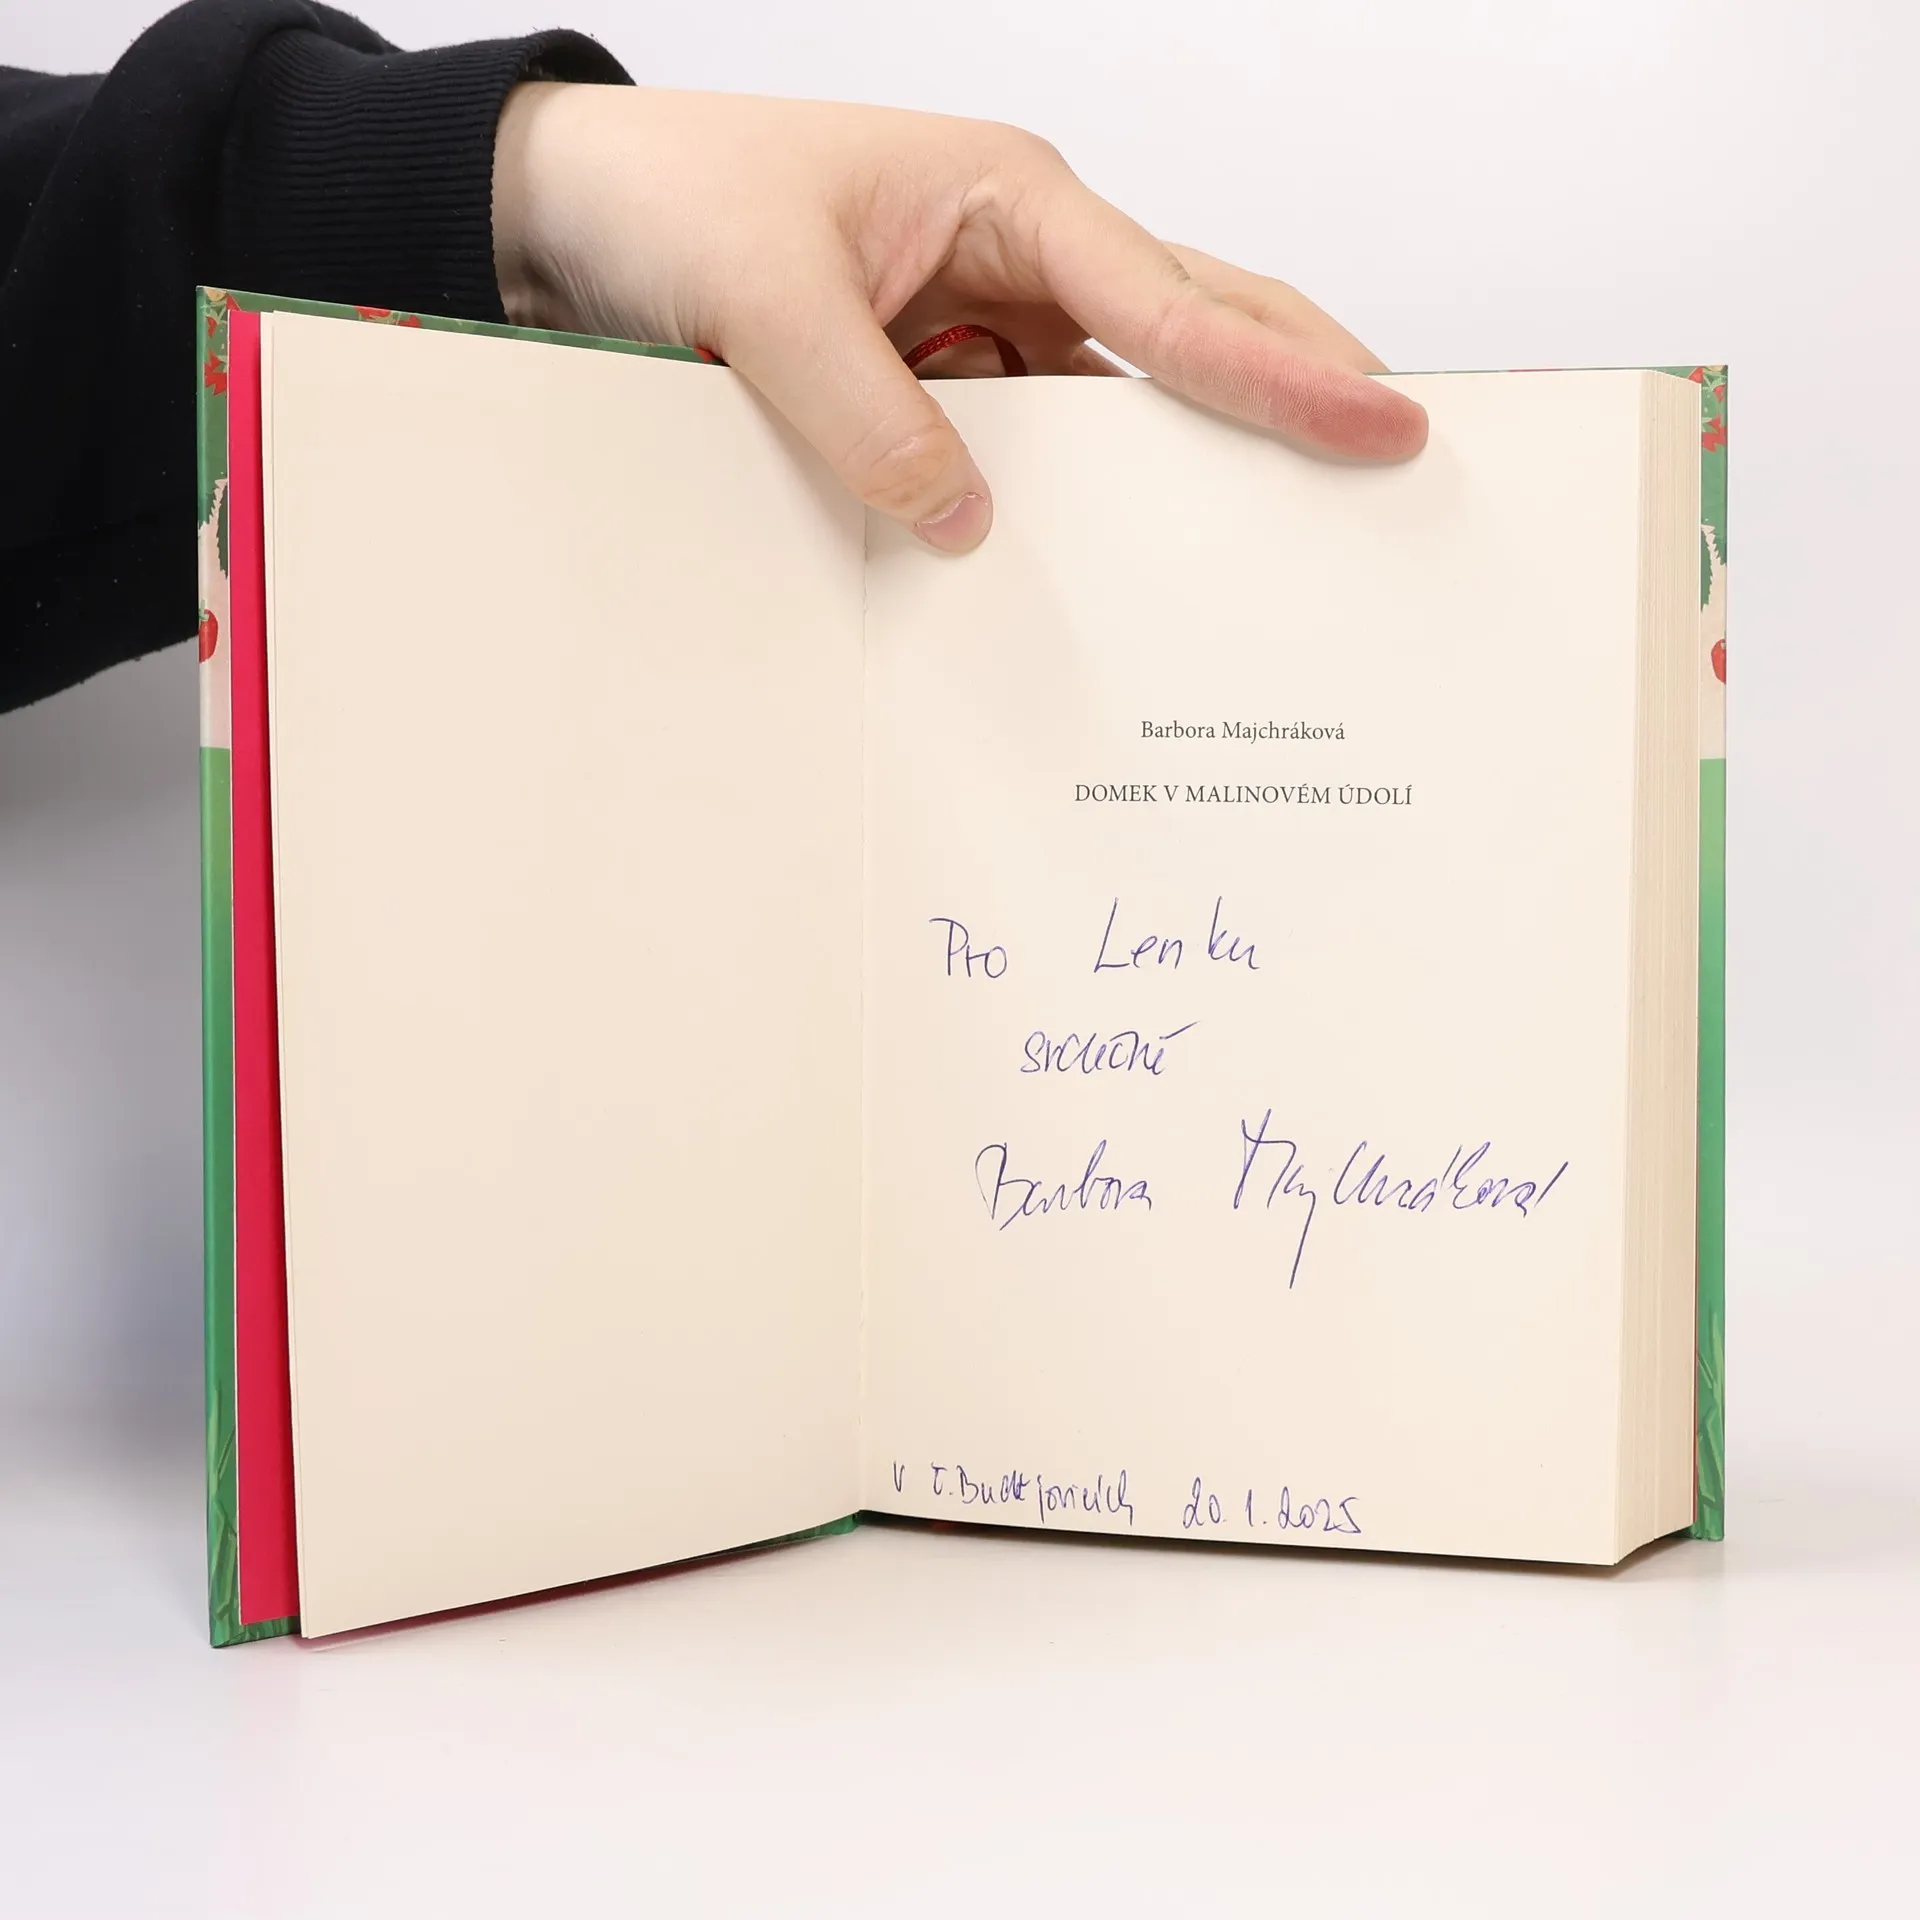 Barbora Majchráková
DOMEK V MALINOVÉM ÚDOLÍ
Pro Lenku
srdečně
Barbora Majchráková
V Č. Budějovicích 20.1.2025